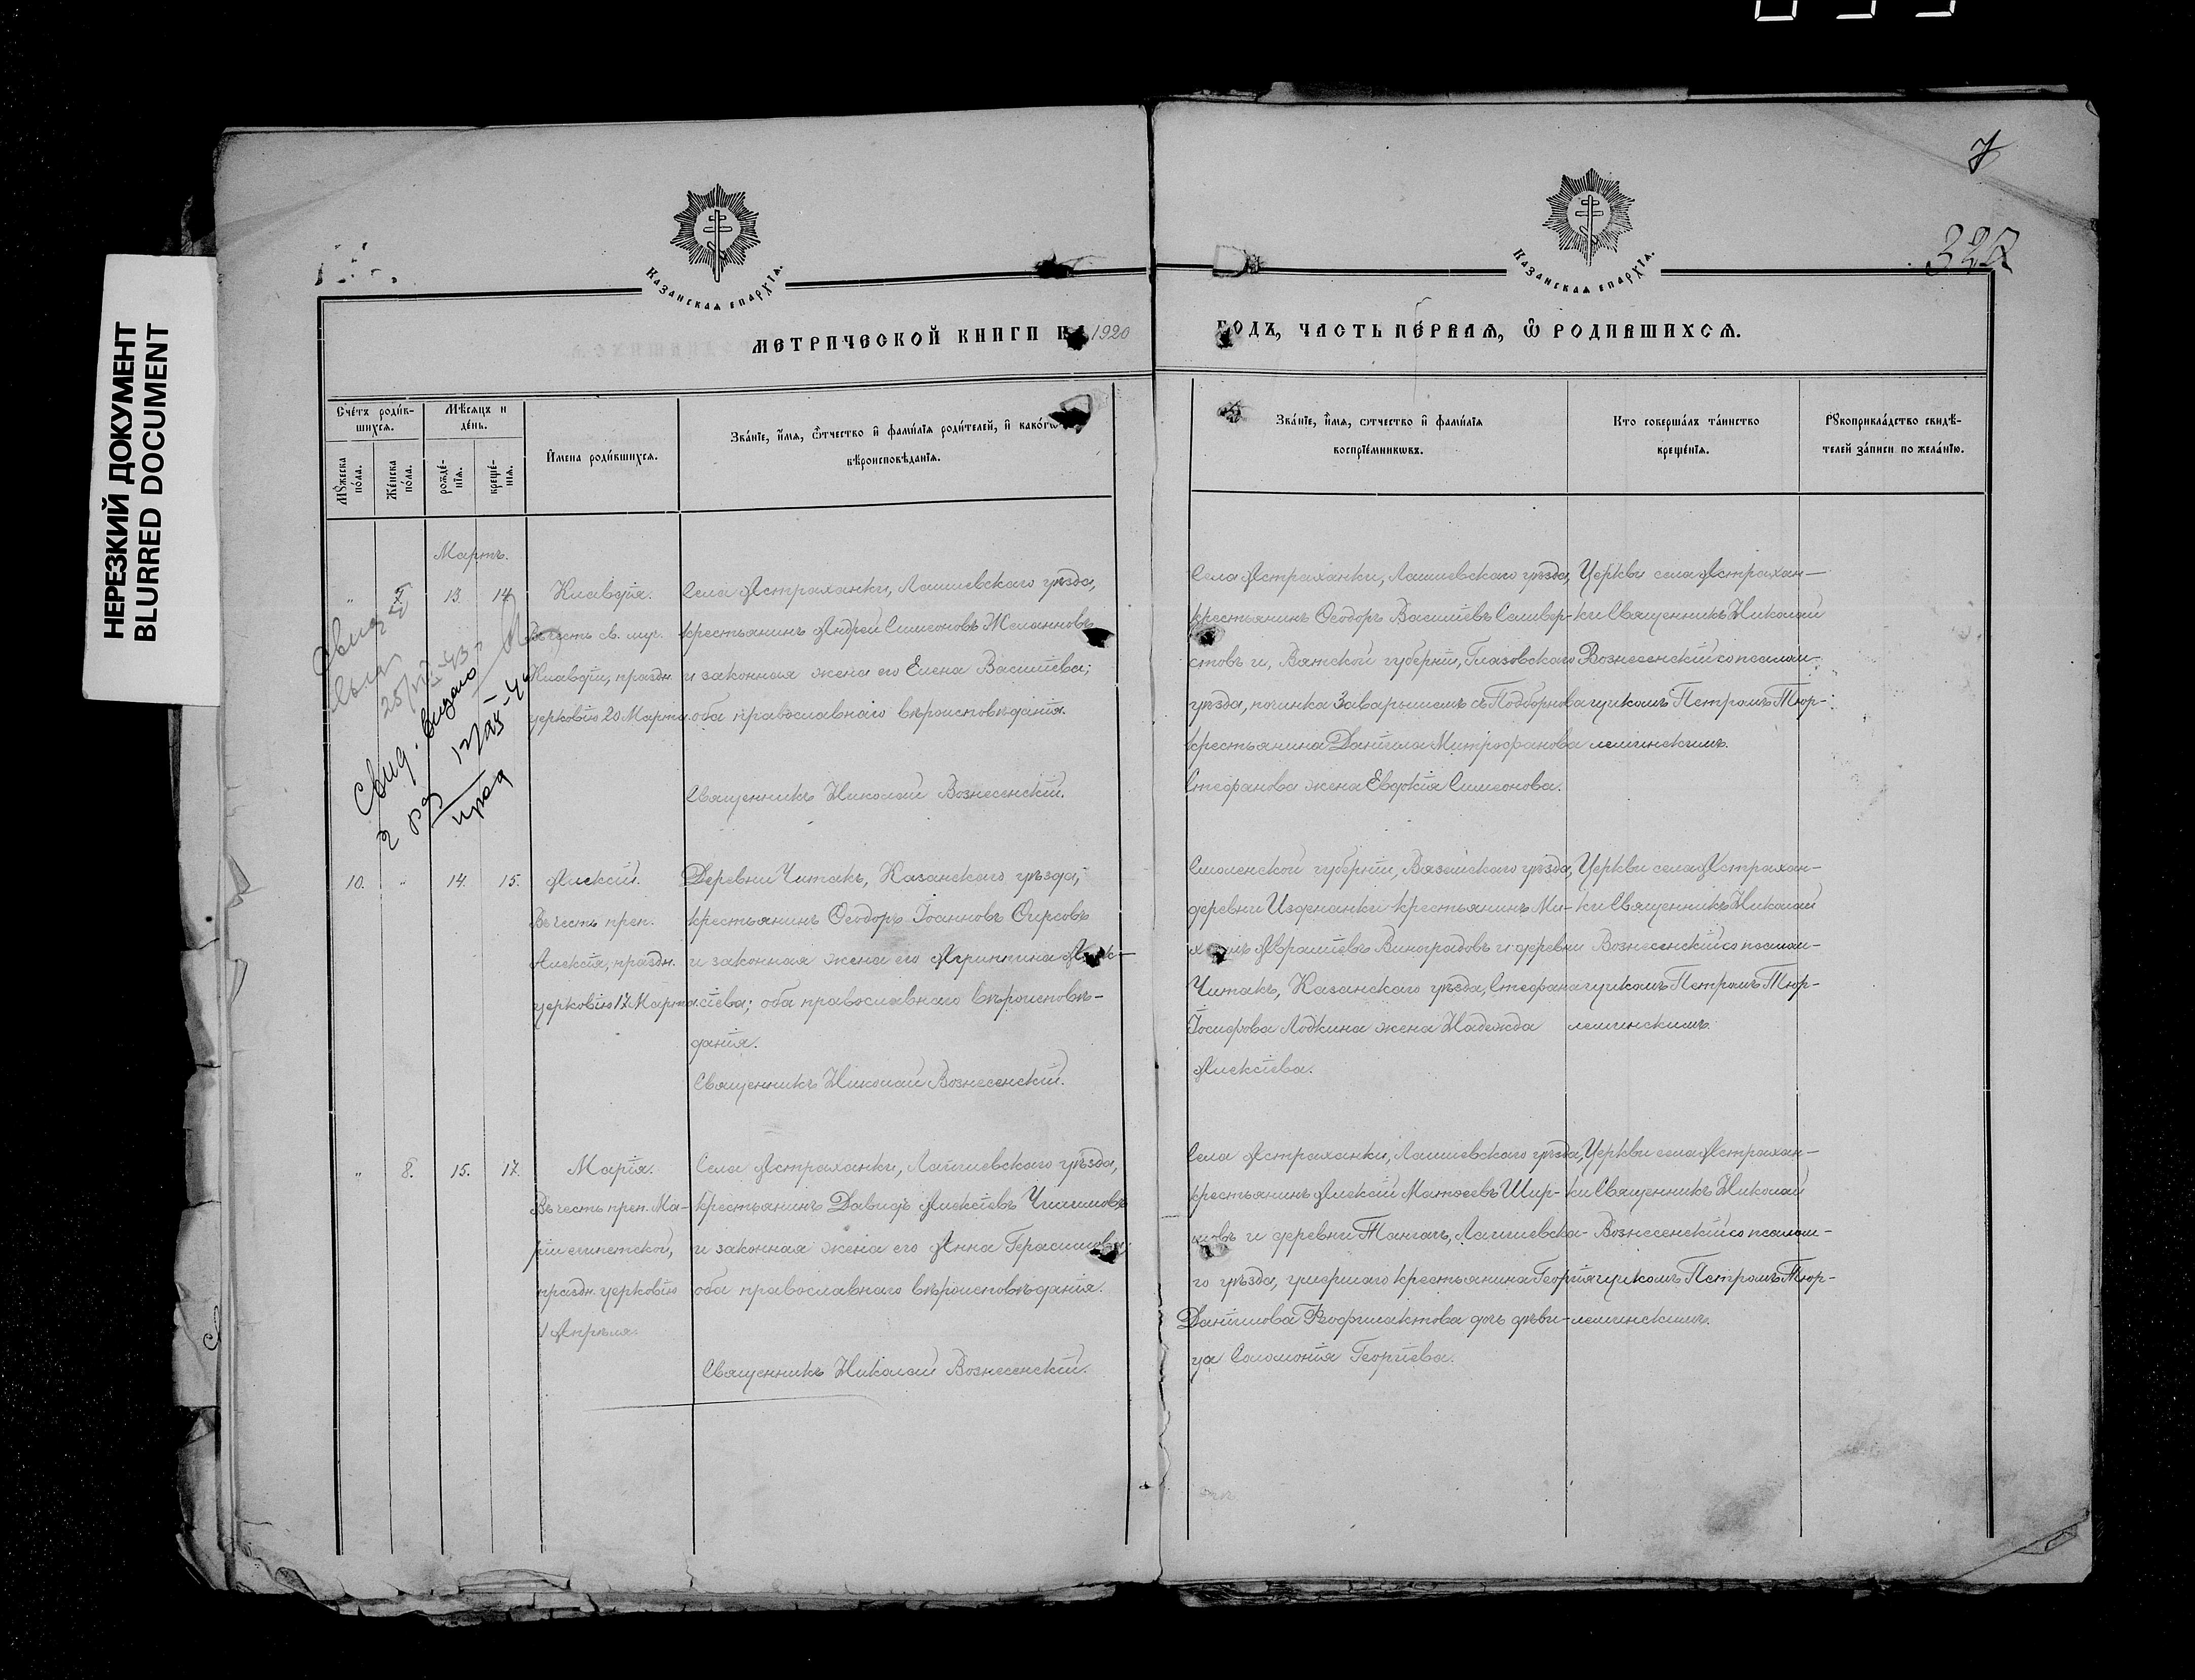 НЕРЕЗКИЙ ДОКУМЕНТ
BLURRED DOCUMENT
7
327
КАЗАНСКАѦ ЕПАРХІѦ.
КАЗАНСКАѦ ЕПАРХІѦ.
МЕТРИЧЕСКОЙ КНИГИ НА 1920
ГОДЪ, ЧАСТЬ ПЕ́РВАѦ, Ѽ РОДИВШИХСѦ.
Сче́тъ роди́в-
шихсѧ.
Мѣ́сѧцъ и
де́нь.
Мꙋ́жеска по́ла.
Же́нска по́ла.
рожде́-
нїѧ.
креще́-
нїѧ.
И҆мена роди́вшихсѧ.
Зва́нїе, и҆́мѧ, ѻ҆́тчество и҆ фами́лїѧ роди́телей, и҆ како́гѡ
вѣроисповѣ́данїѧ.
Зва́нїе, и҆́мѧ, ѻтчество и҆ фами́лїѧ
воспрїе́мникѡвъ.
Кто совершáлъ тáинство
креще́нїѧ.
Рꙋкоприклáдство свидѣ́-
телей зáписи по желáнїю.
Мартъ.
„ 7 13 14
Клавдія.
Въ честь св. муч.
Клавдіи, праздн.
церковію 20 Марта.
Села Астраханки, Лаишевскаго уѣзда,
крестьянинъ Андрей Симеоновъ Желанновъ
и законная жена его Елена Василіева;
оба православнаго вѣроисповѣданія.
Священникъ Николай Вознесенскій.
Села Астраханки, Лаишевскаго уѣзда,
крестьянинъ Ѳеодоръ Василіевъ Селивер-
стовъ и, Вятской губерніи, Глазовскаго
уѣзда, починка
крестьянина Даніила Митрофанова
Стефанова жена Евдокія Симеонова.
Церкви села Астрахан-
ки Священникъ Николай
Вознесенскій со псалом-
щикомъ Петромъ Тюр-
леминскимъ.
Свид. выдано
10. „ 14. 15.
Алексій.
Въ честь преп.
Алексія, праздн.
церковію 17 Марта.
Деревни Читакъ, Казанскаго уѣзда,
крестьянинъ Ѳеодоръ Іоанновъ Ѳирсовъ
и законная жена его Агриппина Алек-
сіева; оба православнаго вѣроисповѣ-
данія.
Священникъ Николай Вознесенскій.
Смоленской губерніи, Вяземскаго уѣзда,
деревни Издепанки крестьянинъ Ми-
хаилъ Авраміевъ Виноградовъ и деревни
Читакъ, Казанскаго уѣзда, Стефана
Іосифова Лодкина жена Надежда
Алексіева.
Церкви села Астрахан-
ки Священникъ Николай
Вознесенскій со псалом-
щикомъ Петромъ Тюр-
леминскимъ.
„ 8. 15. 17.
Марія.
Въ честь преп. Ма-
ріи египетской,
праздн. церковію
1 Апрѣля.
Села Астраханки, Лаишевскаго уѣзда,
крестьянинъ Давидъ Алексіевъ
и законная жена его Анна Герасимова;
оба православнаго вѣроисповѣданія.
Священникъ Николай Вознесенскій.
Села Астраханки, Лаишевскаго уѣзда,
крестьянинъ Алексій Матѳеевъ Шир-
и деревни Тангачъ, Лаишевска-
го уѣзда, умершаго крестьянина Георгія
Даніилова Ѳеофилактова дочь дѣви-
ца Соломонія Георгіева.
Церкви села Астрахан-
ки Священникъ Николай
Вознесенскій со псалом-
щикомъ Петромъ Тюр-
леминскимъ.